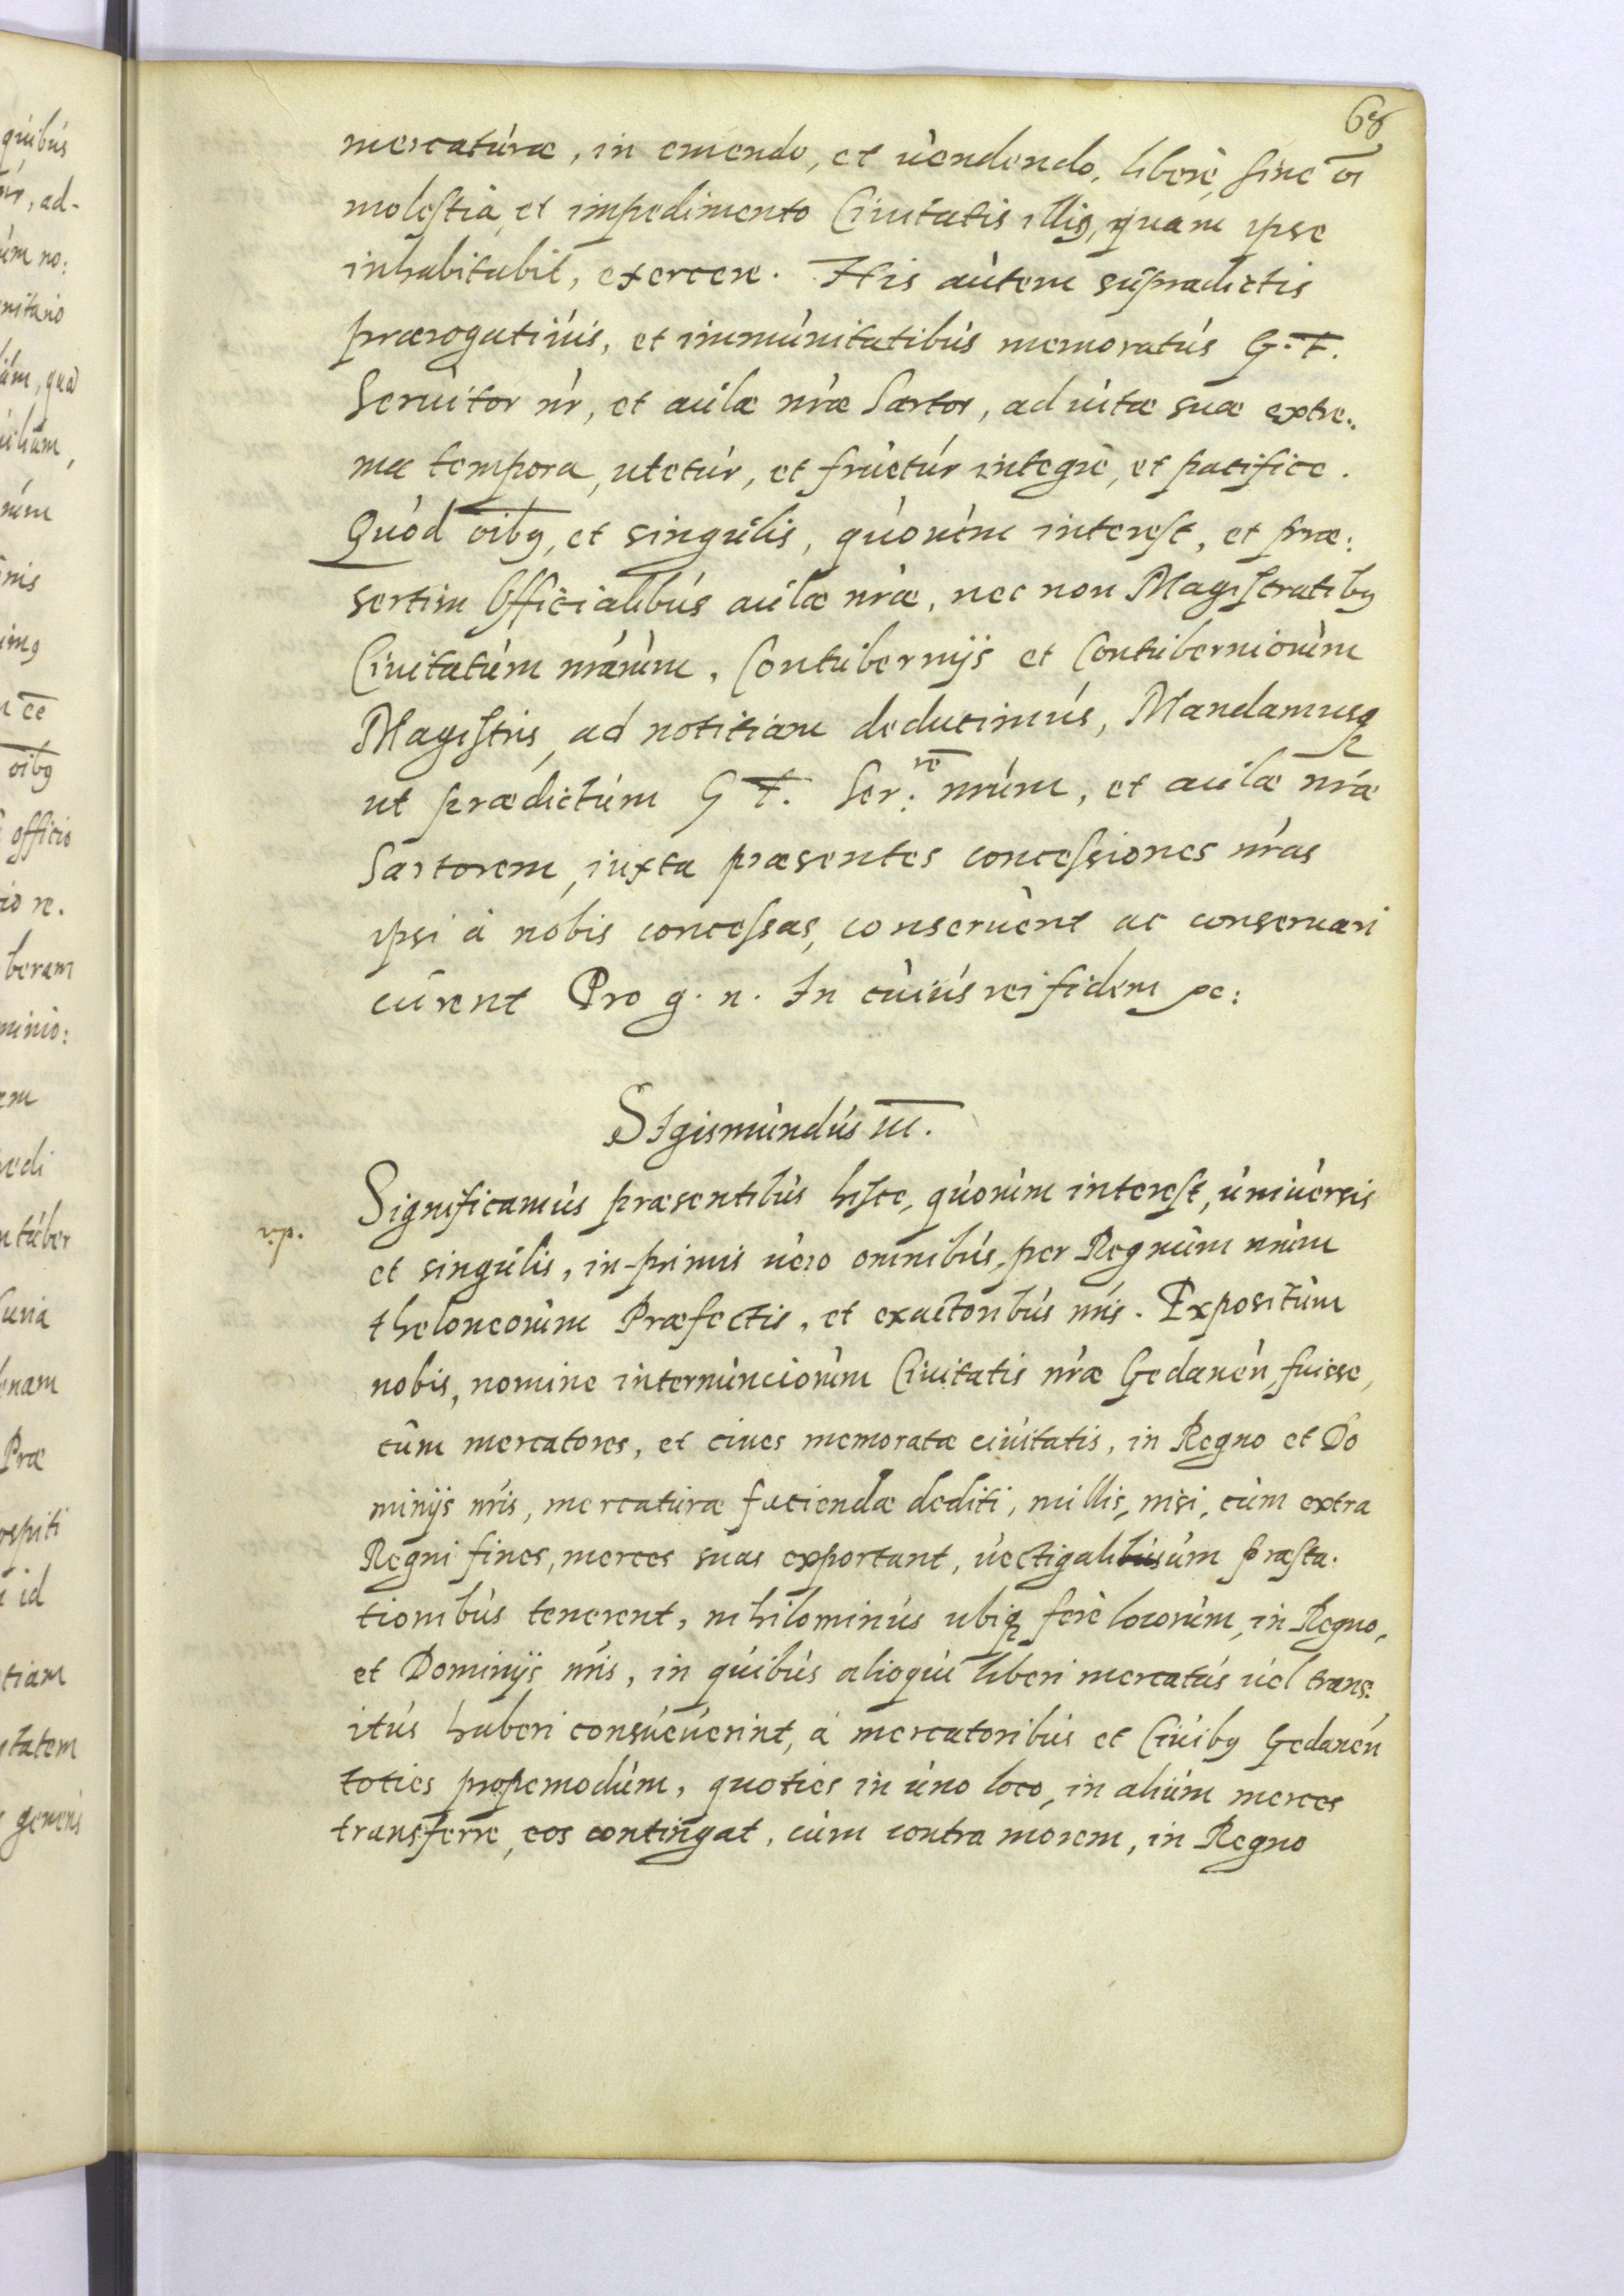 68
mercaturæ, in emendo, et uendendo, liberè, sine oi
molestia, et impedimento Ciuitatis illig, quam ipse
inhabitabit, exercere. His autem supradictis
prærogatiuis, et immunitatibus memoratus G. F.
Seruitor nr, et aulæ nræ Sartor, ad uitæ suæ extre:
ma tempora, utetur, et fruetur integrè, et pacifice.
Quod oibg, et singulis, quorum interest, et præ:
sertim Officialibus aulæ nræ, nec non Magistratibg
Ciuitatum nrarum, Contubernijs et Contuberniorum
Magistris, ad notitiam deducimus, Mandamusq
ut prædictum G F. Ser: re nrum, et aulæ nræ
Sartorem, iuxta præsentes concessiones nras
ipsi à nobis concessas, conseruent ac conseruari
curent Pro g. n. In cuius rei fidem pc:
Sigismundus III.
Significamus præsentibus hisce, quorum interest, uniuersis
v.p.
et singulis, in-primis uero omnibus, per Regnum nrum
theloneorum Præfectis, et exactoribus nris. Expositum
nobis, nomine internunciorum Ciuitatis nræ Gedanen, fuisse,
cum mercatores, et ciues memoratæ ciuitatis, in Regno et Do
minijs nris, mercaturæ faciendæ dediti, nullis, nisi, cum extra
Regni fines, merces suas exportant, uectigalibusum præsta:
tionibus tenerent, nihilominus ubiq ferè locorum, in Regno,
et Dominijs nris, in quibus alioqui liberi mercatus uel trans:
itus haberi consueuerint, à mercatoribus et Ciuibg Gedanen
toties propemodum, quoties in uno loco, in alium merces
transferre, eos contingat, cum contra morem, in Regno